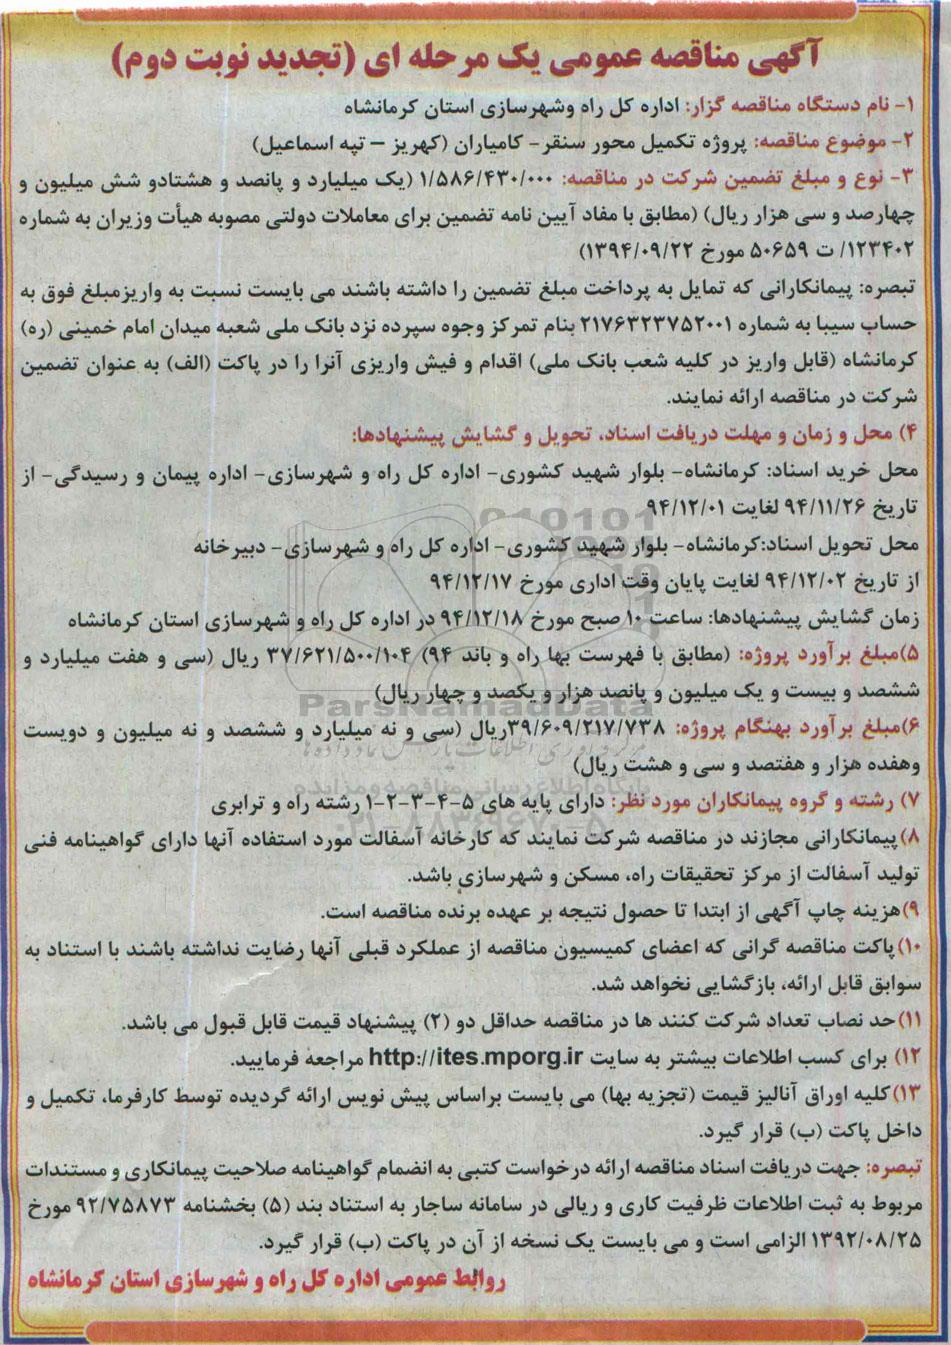 آگهی مناقصه عمومی یک مرحله ای (تجدید نوبت دوم)
۱- نام دستگاه مناقصه گزار: اداره کل راه وشهرسازی استان کرمانشاه
۲- موضوع مناقصه: پروژه تکمیل محور سنقر- کامیاران (کهریز – تپه اسماعیل)
۳- نوع و مبلغ تضمین شرکت در مناقصه: ۱/۵۸۶/۴۳۰/۰۰۰ (یک میلیارد و پانصد و هشتادو شش میلیون و
چهارصد و سی هزار ریال) (مطابق با مفاد آیین نامه تضمین برای معاملات دولتی مصوبه هیأت وزیران به شماره
۱۲۳۴۰۲/ ت ۵۰۶۵۹ مورخ ۱۳۹۴/۰۹/۲۲)
تبصره: پیمانکارانی که تمایل به پرداخت مبلغ تضمین را داشته باشند می بایست نسبت به واریزمبلغ فوق به
حساب سیبا به شماره ۲۱۷۶۳۲۳۷۵۲۰۰۱ بنام تمرکز وجوه سپرده نزد بانک ملی شعبه میدان امام خمینی (ره)
کرمانشاه (قابل واریز در کلیه شعب بانک ملی) اقدام و فیش واریزی آنرا را در پاکت (الف) به عنوان تضمین
شرکت در مناقصه ارائه نمایند.
۴) محل و زمان و مهلت دریافت اسناد، تحویل و گشایش پیشنهادها:
محل خرید اسناد: کرمانشاه- بلوار شهید کشوری- اداره کل راه و شهرسازی- اداره پیمان و رسیدگی- از
تاریخ ۹۴/۱۱/۲۶ لغایت ۹۴/۱۲/۰۱
محل تحویل اسناد:کرمانشاه- بلوار شهید کشوری- اداره کل راه و شهرسازی- دبیرخانه
از تاریخ ۹۴/۱۲/۰۲ لغایت پایان وقت اداری مورخ ۹۴/۱۲/۱۷
زمان گشایش پیشنهادها: ساعت ۱۰ صبح مورخ ۹۴/۱۲/۱۸ در اداره کل راه و شهرسازی استان کرمانشاه
۵)مبلغ برآورد پروژه: (مطابق با فهرست بها راه و باند ۹۴) ۳۷/۶۲۱/۵۰۰/۱۰۴ ریال (سی و هفت میلیارد و
ششصد و بیست و یک میلیون و پانصد هزار و یکصد و چهار ریال)
ParsNamadData
۶)مبلغ برآورد بهنگام پروژه: ۳۹/۶۰۹/۲۱۷/۷۳۸ریال (سی و نه میلیارد و ششصد و نه میلیون و دویست
وهفده هزار و هفتصد و سی و هشت ریال)
پایگاه اطلاع رسانی مناقصه و مزایده
۷) رشته و گروه پیمانکاران مورد نظر: دارای پایه های ۵-۴-۳-۲-۱ رشته راه و ترابری
۸)پیمانکارانی مجازند در مناقصه شرکت نمایند که کارخانه آسفالت مورد استفاده آنها دارای گواهینامه فنی
تولید آسفالت از مرکز تحقیقات راه، مسکن و شهرسازی باشد.
۹)هزینه چاپ آگهی از ابتدا تا حصول نتیجه بر عهده برنده مناقصه است.
۱۰)پاکت مناقصه گرانی که اعضای کمیسیون مناقصه از عملکرد قبلی آنها رضایت نداشته باشند با استناد به
سوابق قابل ارائه، بازگشایی نخواهد شد.
۱۱)حد نصاب تعداد شرکت کنند ها در مناقصه حداقل دو (۲) پیشنهاد قیمت قابل قبول می باشد.
۱۲) برای کسب اطلاعات بیشتر به سایت http://ites.mporg.ir مراجعه فرمایید.
۱۳)کلیه اوراق آنالیز قیمت (تجزیه بها) می بایست براساس پیش نویس ارائه گردیده توسط کارفرما، تکمیل و
داخل پاکت (ب) قرار گیرد.
تبصره: جهت دریافت اسناد مناقصه ارائه درخواست کتبی به انضمام گواهینامه صلاحیت پیمانکاری و مستندات
مربوط به ثبت اطلاعات ظرفیت کاری و ریالی در سامانه ساجار به استناد بند (۵) بخشنامه ۹۲/۷۵۸۷۳ مورخ
۱۳۹۲/۰۸/۲۵ الزامی است و می بایست یک نسخه از آن در پاکت (ب) قرار گیرد.
روابط عمومی اداره کل راه و شهرسازی استان کرمانشاه